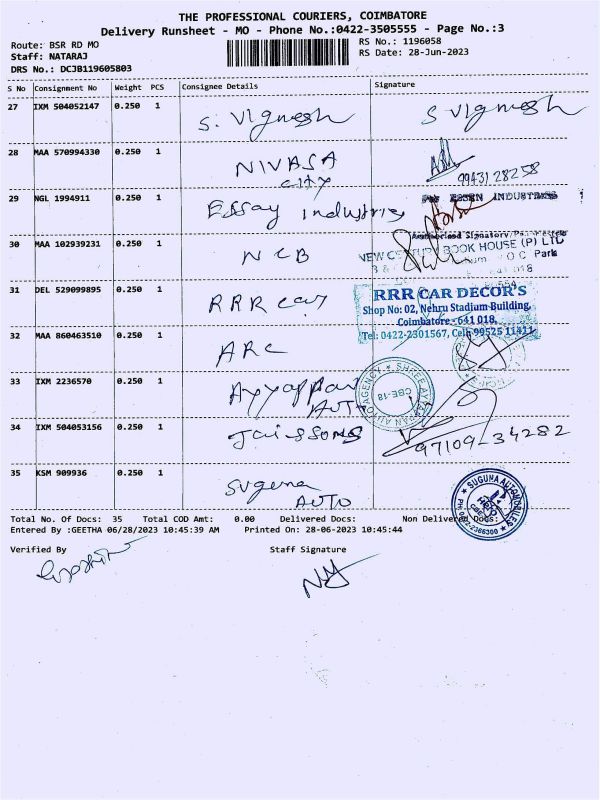 THE PROFESSIONAL COURIERS, COIMBATORE
Delivery Runsheet - MO - Phone No.:0422-3505555 - Page No.:3
Route: BSR RD MO
RS No.: 1196058
Staff: NATARAJ
RS Date: 28-Jun-2023
DRS No.: DCJB119605803
S No Consignment No Weight PCS Consignee Details Signature
27 IXM 504052147 0.250 1 S. Vignesh S Vignesh
28 MAA 570994330 0.250 1 NIVASA
City
9943128258
29 NGL 1994911 0.250 1 Essay industries
For ESSEN INDUSTRIES
Authorised Signatory
30 MAA 102939231 0.250 1 NCB
NEW CENTURY BOOK HOUSE (P) LTD
O C Park
31 DEL 529099895 0.250 1 RRR Car
RRR CAR DECOR'S
Shop No: 02, Nehru Stadium Building,
Coimbatore - 641 018.
Tel: 0422-2301567, Cell: 99525 11411
32 MAA 860463510 0.250 1 ARC
33 IXM 2236570 0.250 1 Ayyappan
AUTO
SHREE AYYAPPAN AUTO AGENCY
CBE-18
34 IXM 504053156 0.250 1 Jaissons
97109-34282
35 KSM 909936 0.250 1 Suguna
AUTO
SUGUNA AUTOMOBILES
Hero
Total No. Of Docs: 35 Total COD Amt: 0.00 Delivered Docs: Non Delivered Docs:
Entered By :GEETHA 06/28/2023 10:45:39 AM Printed On: 28-06-2023 10:45:44
Verified By Staff Signature